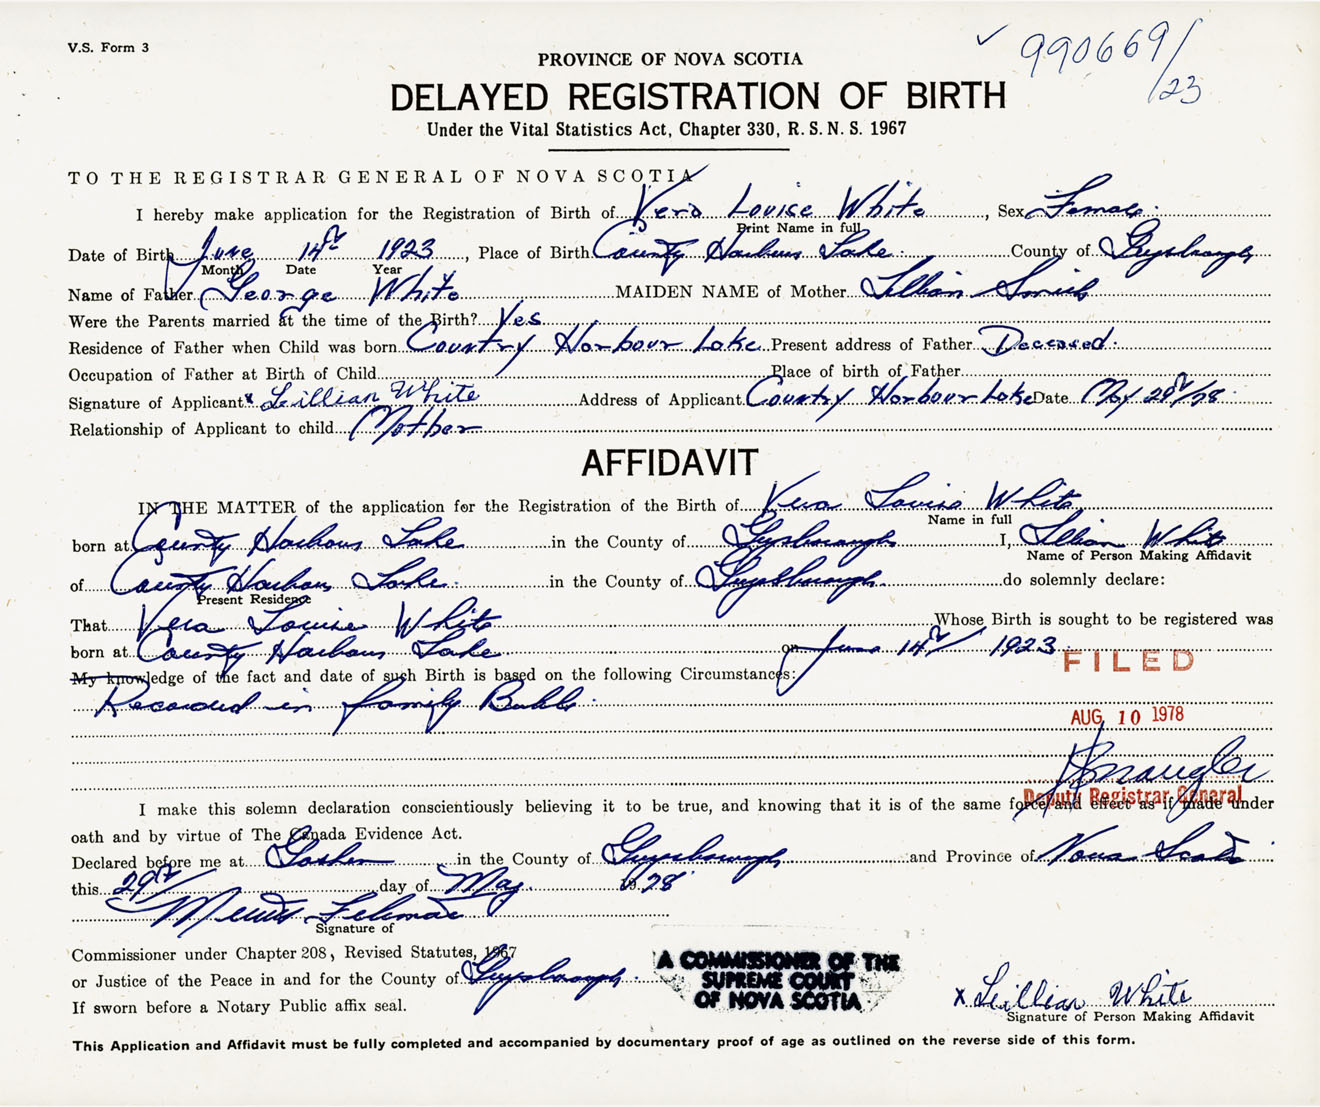 V.S. Form 3
990669/23
PROVINCE OF NOVA SCOTIA
DELAYED REGISTRATION OF BIRTH
Under the Vital Statistics Act, Chapter 330, R. S. N. S. 1967
TO THE REGISTRAR GENERAL OF NOVA SCOTIA
I hereby make application for the Registration of Birth of Vera Louise White, Sex Female.
Print Name in full
Date of Birth June 14th 1923, Place of Birth Country Harbour Lake. County of Guysborough
Month Date Year
Name of Father George White MAIDEN NAME of Mother Lillian
Were the Parents married at the time of the Birth? Yes
Residence of Father when Child was born Country Harbour Lake Present address of Father Deceased.
Occupation of Father at Birth of Child Place of birth of Father
Signature of Applicant x Leillian White Address of Applicant Country Harbour Lake Date May 29th/78
Relationship of Applicant to child Mother
AFFIDAVIT
IN THE MATTER of the application for the Registration of the Birth of Vera Louise White
Name in full
born at Country Harbour Lake in the County of Guysborough I, Lillian White
Name of Person Making Affidavit
of Country Harbour Lake. in the County of Guysborough. do solemnly declare:
Present Residence
That Vera Louise White Whose Birth is sought to be registered was
born at Country Harbour Lake. on June 14th/ 1923.
My knowledge of the fact and date of such Birth is based on the following Circumstances:
FILED
Recorded in family
AUG 10 1978
Deputy Registrar General
I make this solemn declaration conscientiously believing it to be true, and knowing that it is of the same force and effect as if made under
oath and by virtue of The Canada Evidence Act.
Declared before me at Goshen in the County of Guysborough and Province of Nova Scotia
this 29th day of May 1978.
Signature of
Commissioner under Chapter 208, Revised Statutes, 1967
or Justice of the Peace in and for the County of Guysborough.
If sworn before a Notary Public affix seal.
A COMMISSIONER OF THE
SUPREME COURT
OF NOVA SCOTIA
x Leillian White
Signature of Person Making Affidavit
This Application and Affidavit must be fully completed and accompanied by documentary proof of age as outlined on the reverse side of this form.